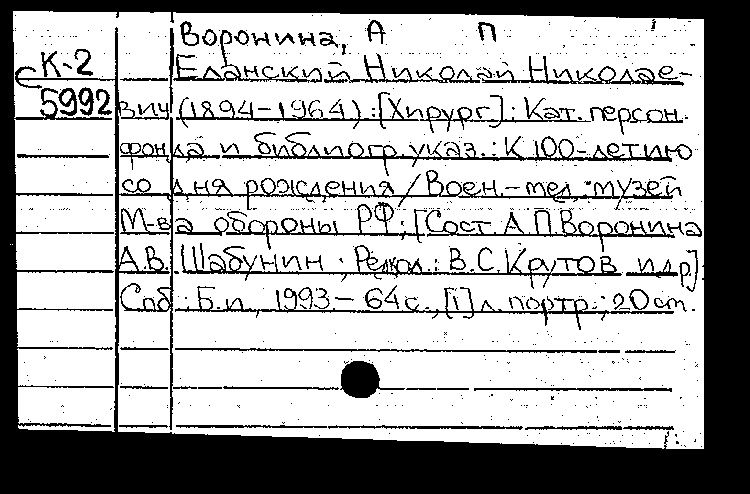 Воронина, А П
К-2 Еланский Николай Николае-
5992 вич (1894-1964) : [Хирург] : Кат. персон.
фонда и библиогр. указ. : К 100-летию
со дня рождения / Воен.-мед. музей
М-ва обороны РФ ; [Сост. А.П. Воронина
А.В. Шабунин ; Редкол.: В.С. Крутов и др].
Спб : Б.и., 1993. - 64 с., [1] л. портр. ; 20 cm.